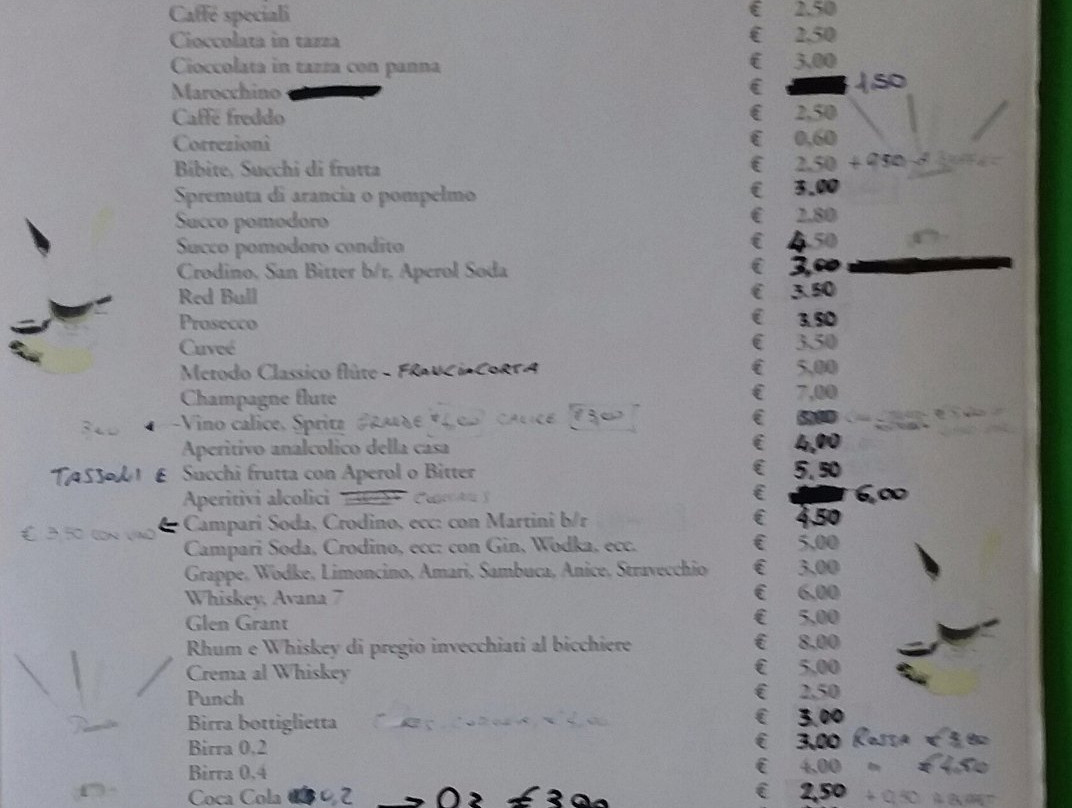 Caffé speciali € 2,50
Cioccolata in tazza € 2,50
Cioccolata in tazza con panna € 3,00
Marocchino € 1,50
Caffé freddo € 2,50
Correzioni € 0,60
Bibite, Succhi di frutta € 2,50
Spremuta di arancia o pompelmo € 3,00
Succo pomodoro € 2,80
Succo pomodoro condito € 4,50
Crodino, San Bitter b/r, Aperol Soda € 3,00
Red Bull € 3,50
Prosecco € 3,50
Cuveé € 3,50
Metodo Classico flûte - FRANCIACORTA € 5,00
Champagne flute € 7,00
Vino calice, Spritz GRANDE CALICE €
Aperitivo analcolico della casa € 4,00
TASSONI E Succhi frutta con Aperol o Bitter € 5,50
Aperitivi alcolici € 6,00
€ 3,50 CON VINO Campari Soda, Crodino, ecc: con Martini b/r € 4,50
Campari Soda, Crodino, ecc: con Gin, Wodka, ecc. € 5,00
Grappe, Wodke, Limoncino, Amari, Sambuca, Anice, Stravecchio € 3,00
Whiskey, Avana 7 € 6,00
Glen Grant € 5,00
Rhum e Whiskey di pregio invecchiati al bicchiere € 8,00
Crema al Whiskey € 5,00
Punch € 2,50
Birra bottiglietta € 3,00
Birra 0,2 € 3,00 ROSSA
Birra 0,4 € 4,00 " € 4,50
Coca Cola 0,2 → 03 € 3,00 € 2,50